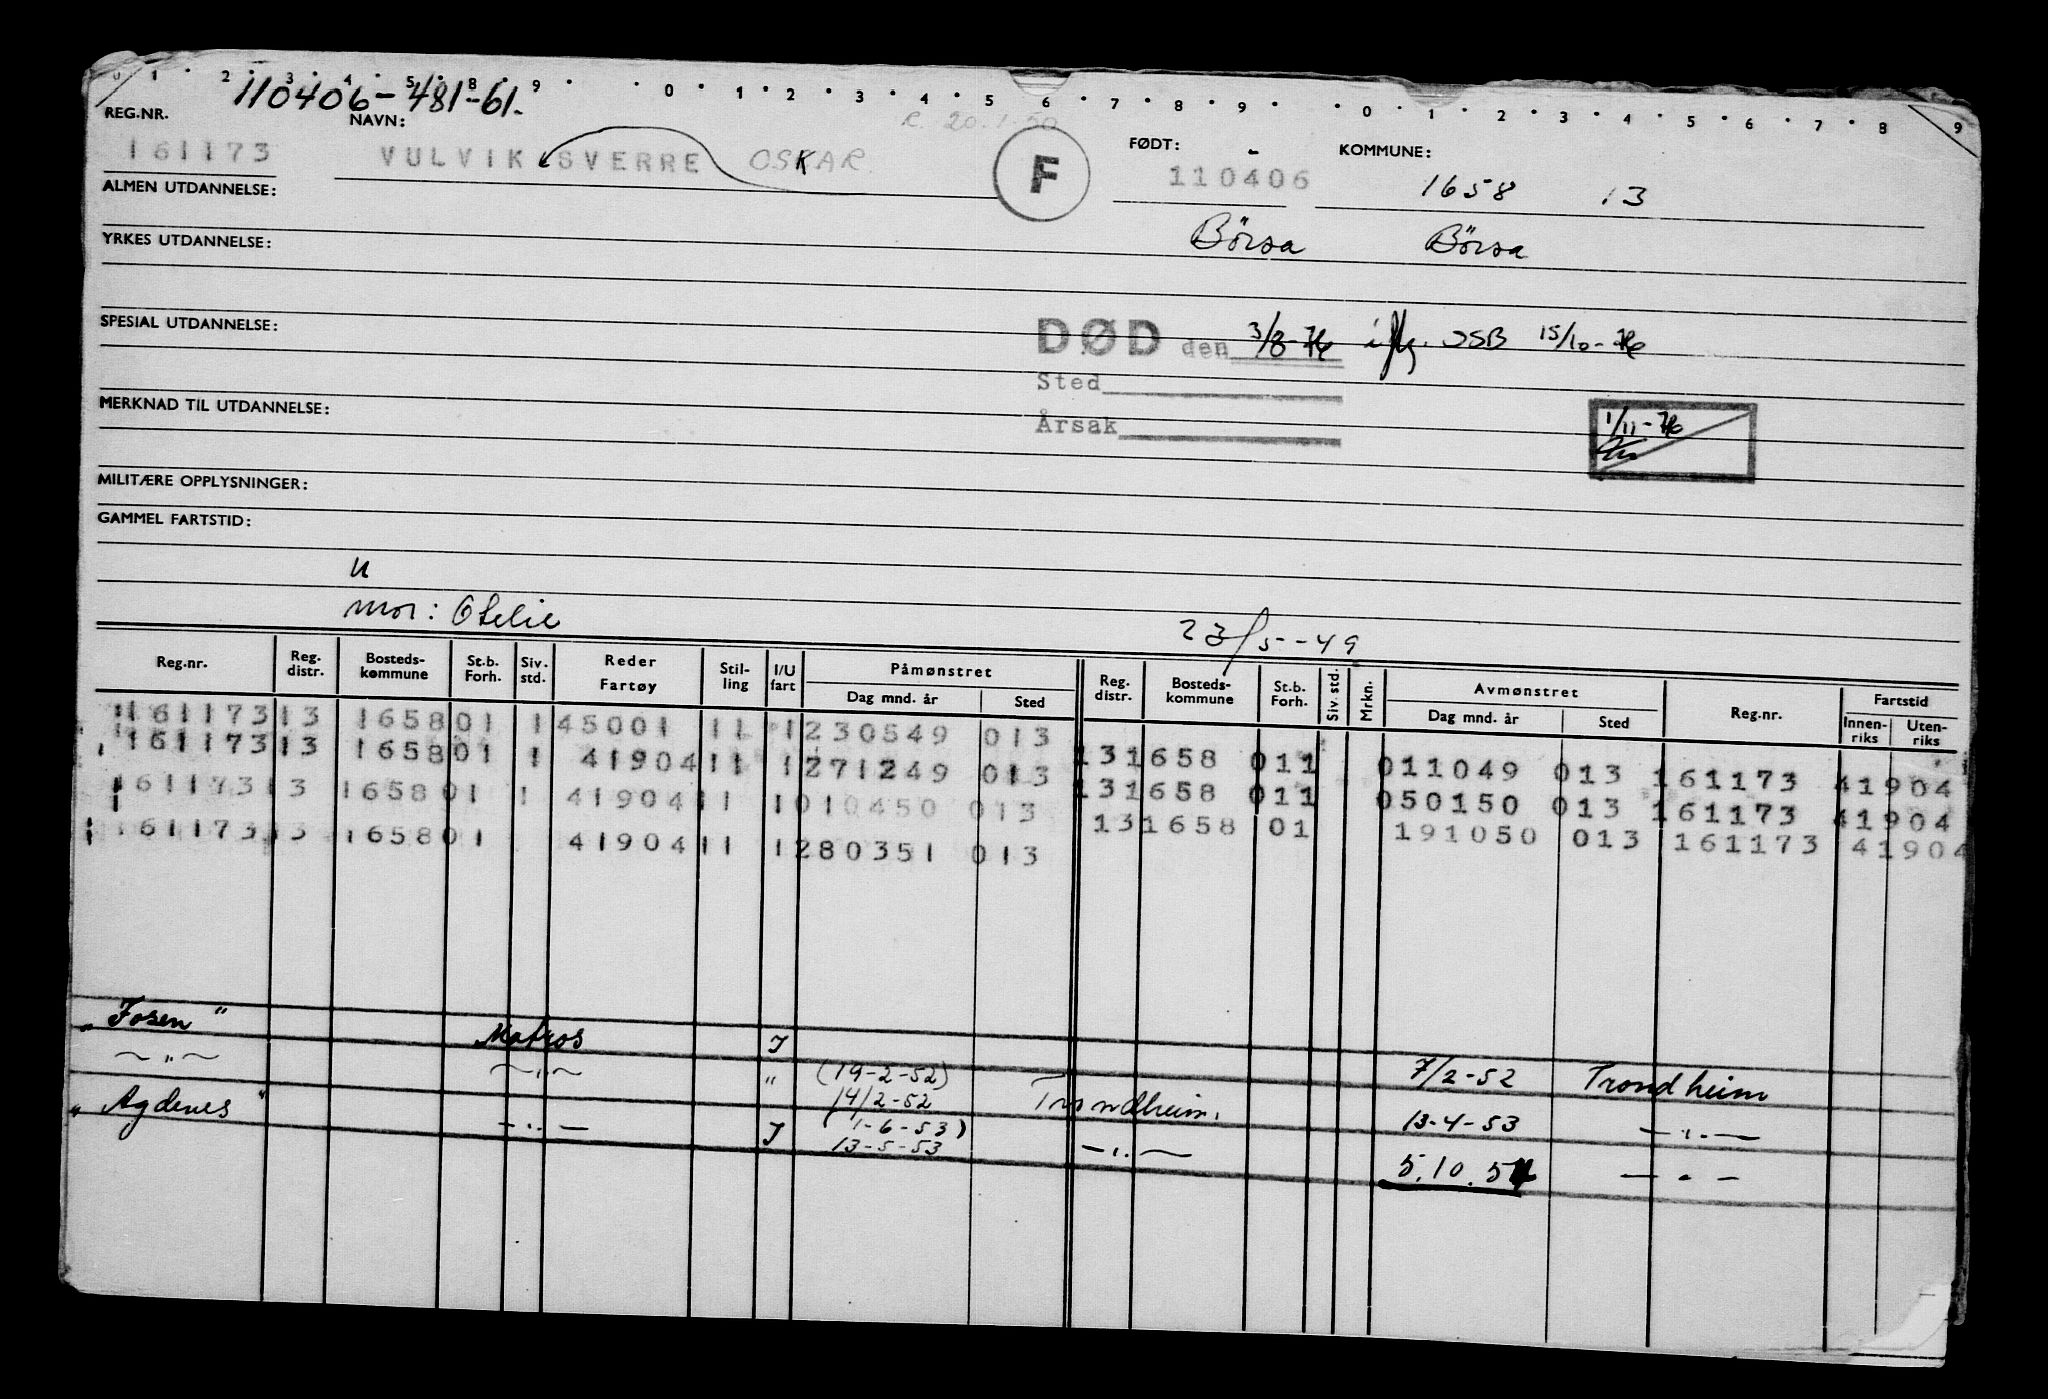 0 1 2 3 4 5 8 9 0 1 2 3 4 5 6 7 8 9 0 1 2 3 4 5 6 7 8 9
110406-481-61.
REG.NR. NAVN: FØDT: KOMMUNE:
161173 VULVIK SVERRE OSKAR. F 110406 1658 13
ALMEN UTDANNELSE:
Börsa Börsa
YRKES UTDANNELSE:
SPESIAL UTDANNELSE:
DØD den 3/8-76 iflg. JSB 15/10-76
Sted
MERKNAD TIL UTDANNELSE:
Årsak
1/11-76
MILITÆRE OPPLYSNINGER:
GAMMEL FARTSTID:
u
mor: Otelie 23/5-49
Reg.nr. Reg. distr. Bosteds-kommune St.b. Forh. Siv. std. Reder Fartøy Stil-ling I/U fart Påmønstret Dag mnd. år Sted Reg. distr. Bosteds-kommune St.b. Forh. Siv. std. Mrkn. Avmønstret Dag mnd. år Sted Reg.nr. Fartstid Innen-riks Uten-riks
161173 13 1658 01 1 45001 11 1 230549 013
161173 13 1658 01 1 41904 11 1 271249 013 13 1658 011 011049 013 161173 41904
161173 13 1658 01 1 41904 11 1 010450 013 13 1658 011 050150 013 161173 41904
161173 13 1658 01 41904 11 1 280351 013 13 1658 01 191050 013 161173 41904
"Fosen" Matros I 7/2-52 Trondheim
~ " ~ ~ " ~ " (19-2-52) 14/2-52 Trondheim. 13-4-53 - " -
"Agdenes" - " - I (1-6-53) 13-5-53 - " - 5.10.54 - " -